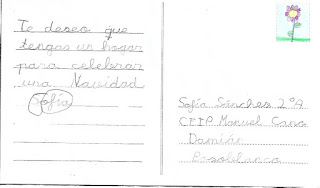 Te deseo que
tengas un hogar
para celebrar
una Navidad
Sofía
Sofía Sánchez 2ºA
CEIP Manuel Cano
Damián
Pozoblanco